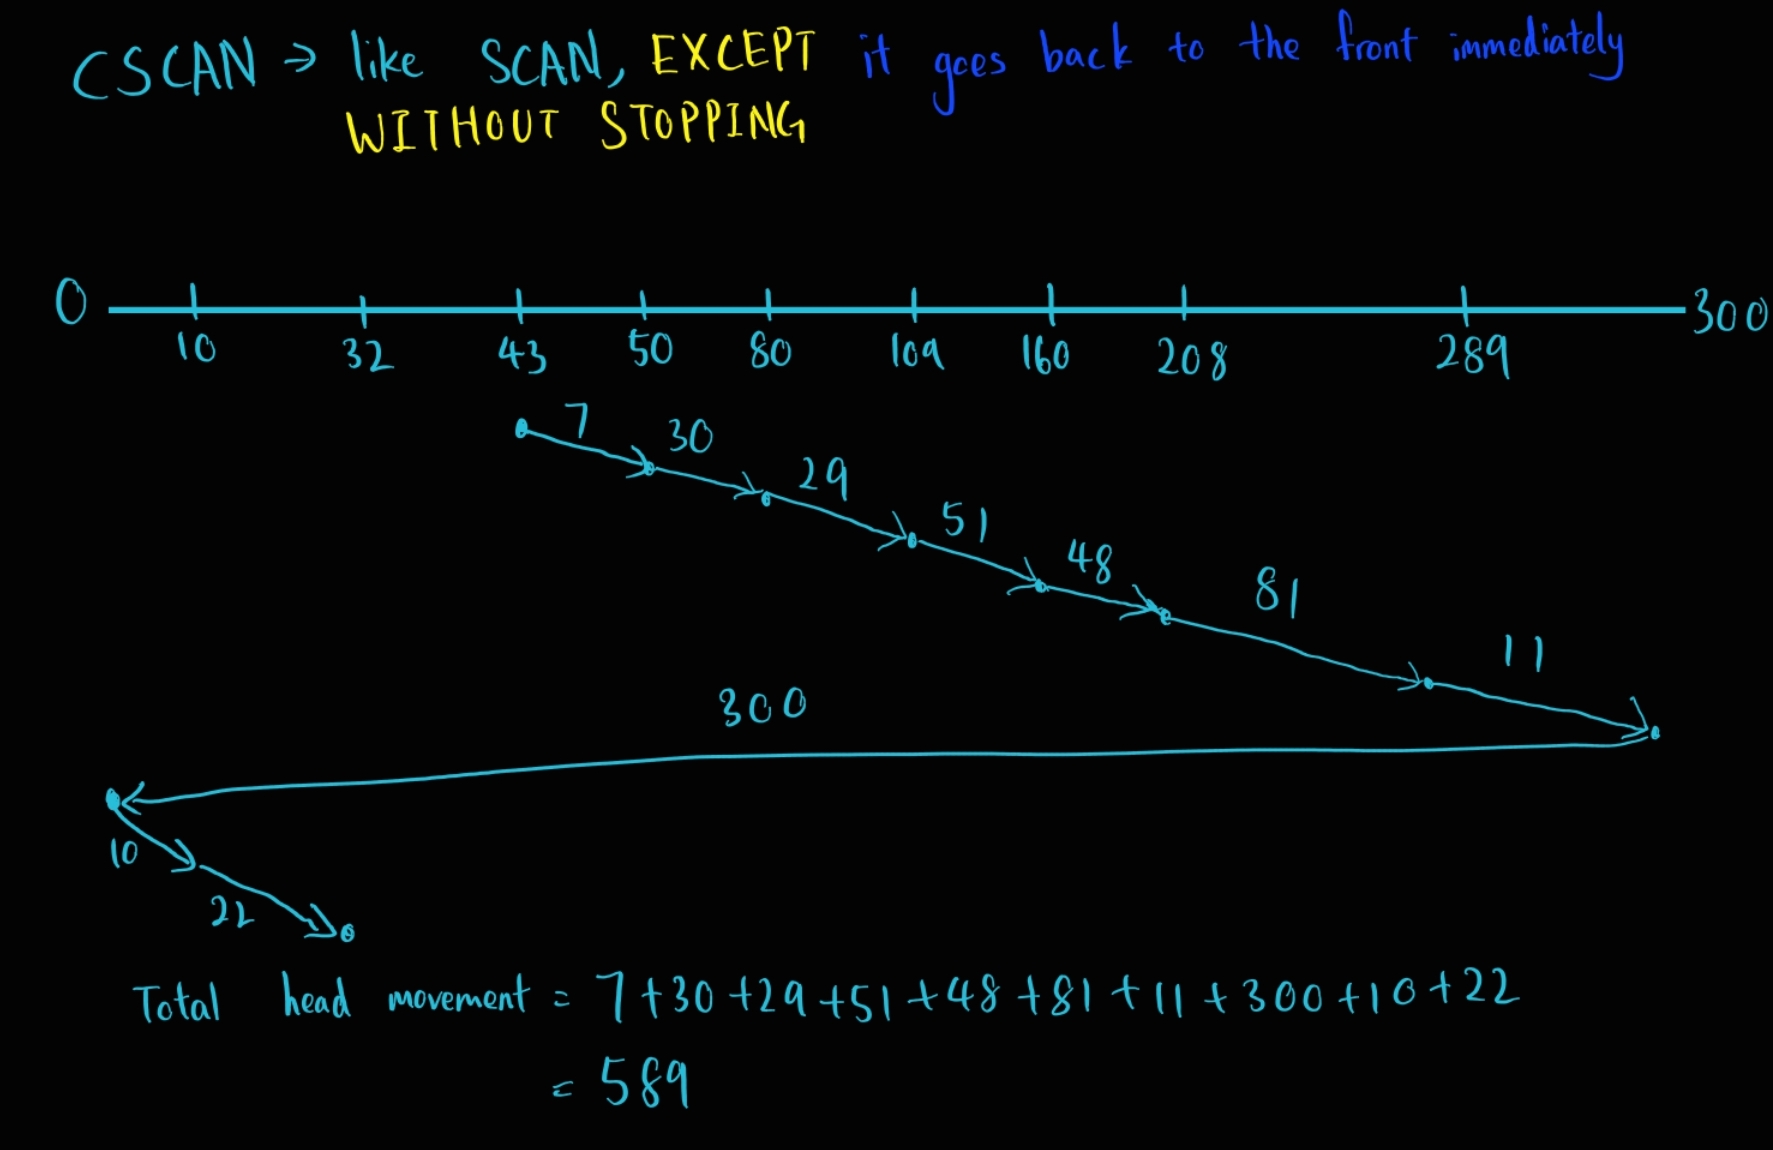 CSCAN → like SCAN, EXCEPT it goes back to the front immediately
WITHOUT STOPPING
0 300
10 32 43 50 80 109 160 208 289
7
30
29
51
48
81
11
300
10
22
Total head movement = 7+30+29+51+48+81+11+300+10+22
= 589